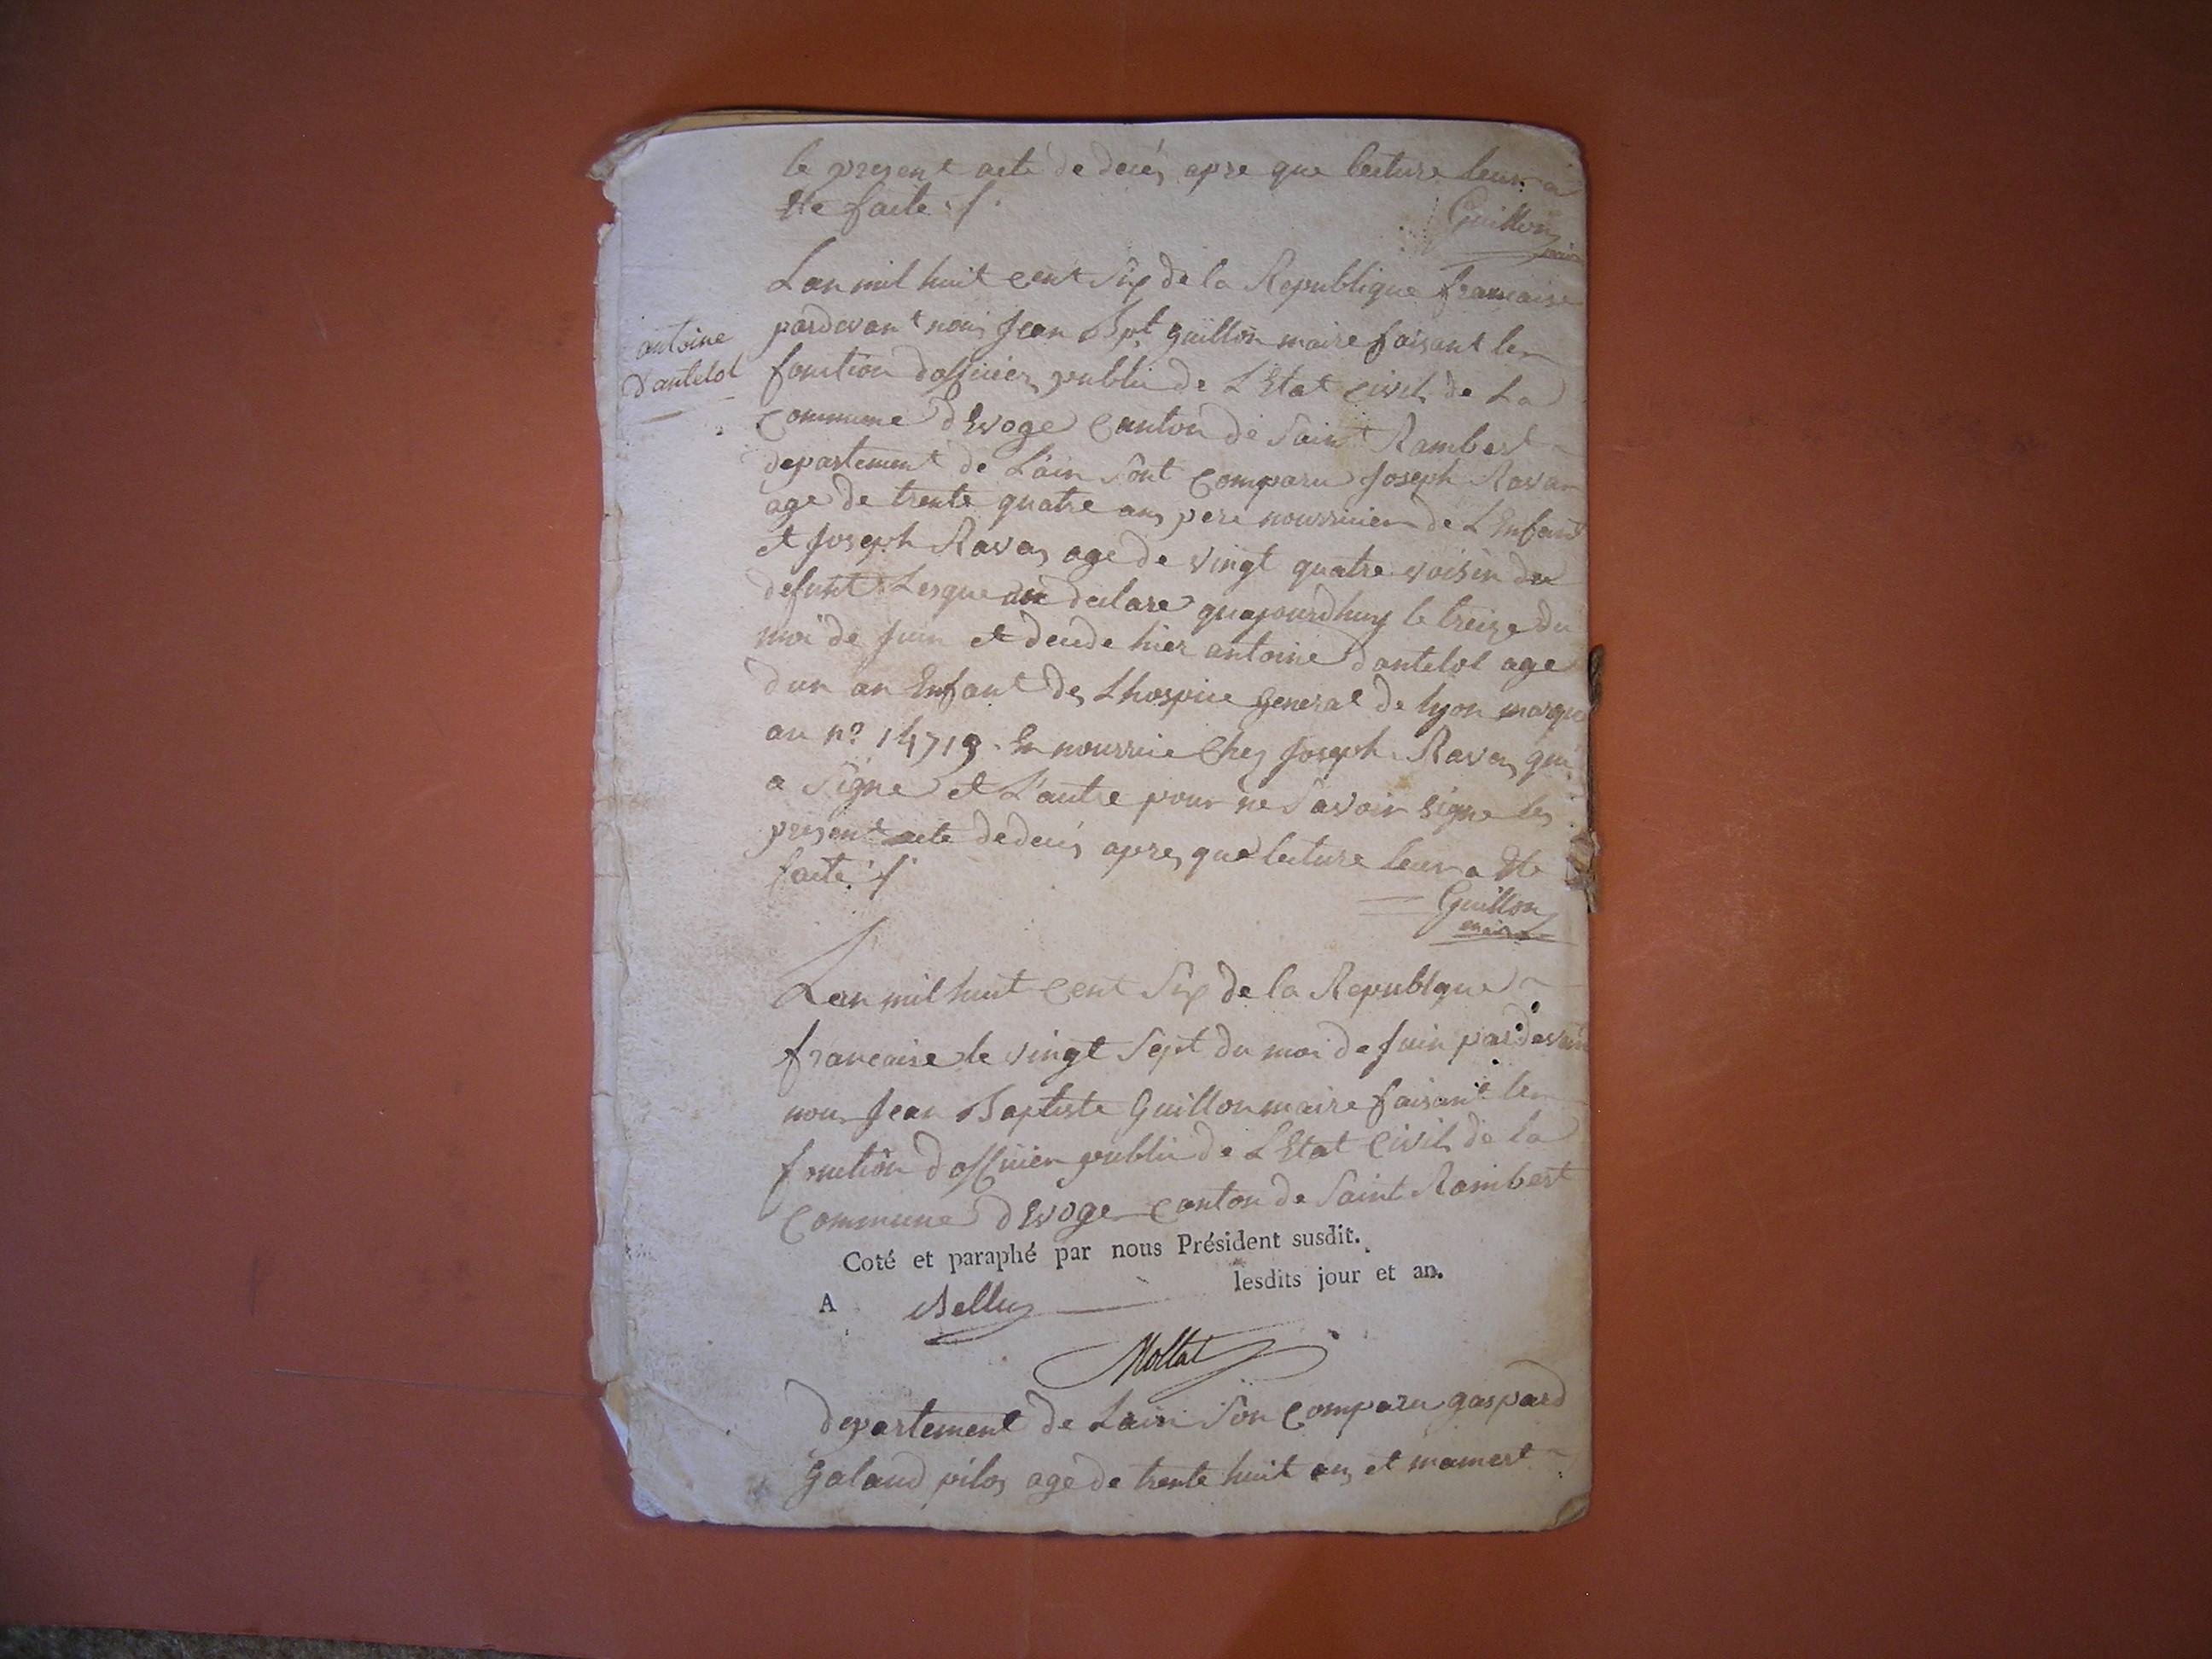 le present acte de decés apre que lecture leur a
ete faite ./.
Guillon
maire
antoine
dantelol
Lan mil huit cent Six de la Republique francaise
pardevant nous Jean Bpt guillon maire faisant les
fonction dofficier public de LEtat civil de La
Commune dEvoge Canton de Saint Rambert
departement de L'ain sont Comparu Joseph Ravas
age de trente quatre ans pere nourricier de LEnfant
et Joseph Ravas age de vingt quatre voisin du
defunt Lesque declare quajourdhuy le treize du
moi de Juin et decede hier antoine dantelol age
dun an Enfant des Lhospice general de lyon marque
au nº 14719. En nourrice Chez Joseph Ravas qui
a Signe et L'autre pour ne Savoir signe les
present acte de decés apres que lecture leur a ete
faite ./.
Guillon
maire
Lan mil huit cent Six de la Republque
francaise le vingt Sept du moi de Juin pardevant
nous Jean Baptiste Guillon maire faisant les
fonction dofficier public de LEtat Civil de la
Commune dEvoge Canton de Saint Rambert
Coté et paraphé par nous Président susdit.
A Belley lesdits jour et an.
departement de Lain Son Comparu gaspard
Galand pilos age de trente huit ans et mamert